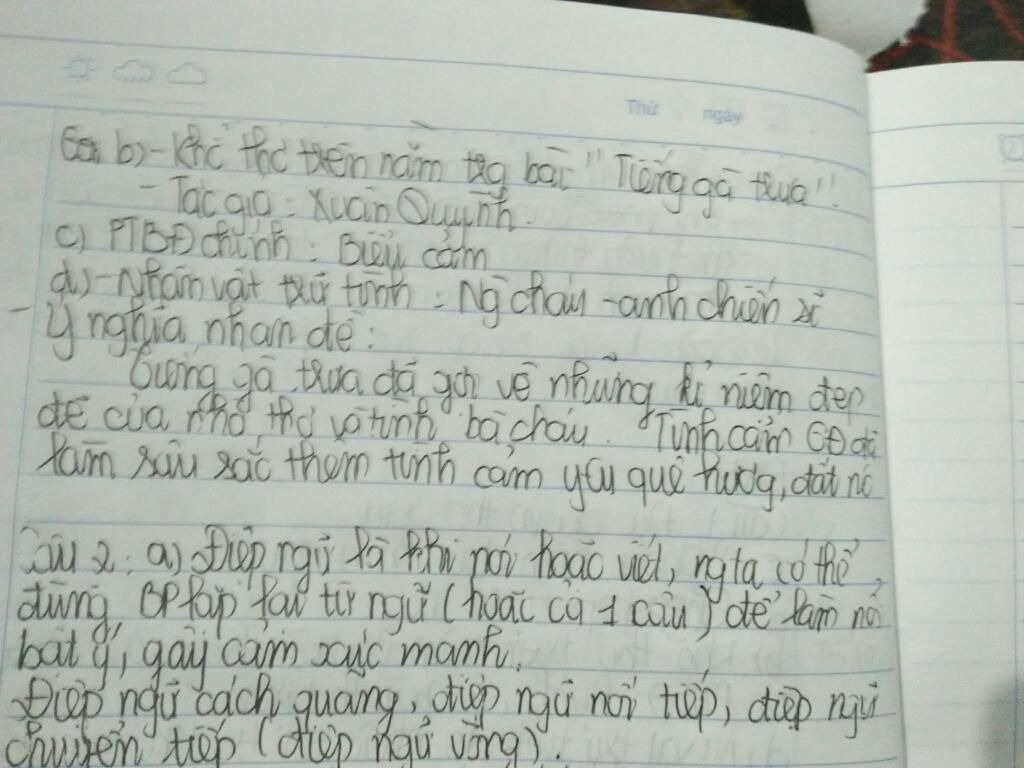 Thứ ngày
b) - Khổ thơ trên nằm trg bài "Tiếng gà trưa".
- Tác giả : Xuân Quỳnh.
c) PTBĐ chính : Biểu cảm
d) - Nhân vật trữ tình : Ng cháu - anh chiến sĩ
- Ý nghĩa nhan đề :
gà trưa đã gợi về những kỉ niệm đẹp
đẽ của nhỏ thơ và tình bà cháu. Tình cảm GĐ đã
làm sâu sắc thêm tình cảm yêu quê hươg, đất nc
Câu 2 : a) Điệp ngữ là khi nói hoặc viết, ng ta có thể
dùng BP lặp lại từ ngữ (hoặc cả 1 câu) để làm nổi
bật ý, gây cảm xúc mạnh.
Điệp ngữ cách quãng, điệp ngữ nối tiếp, điệp ngữ
chuyển tiếp (điệp ngữ vòng).